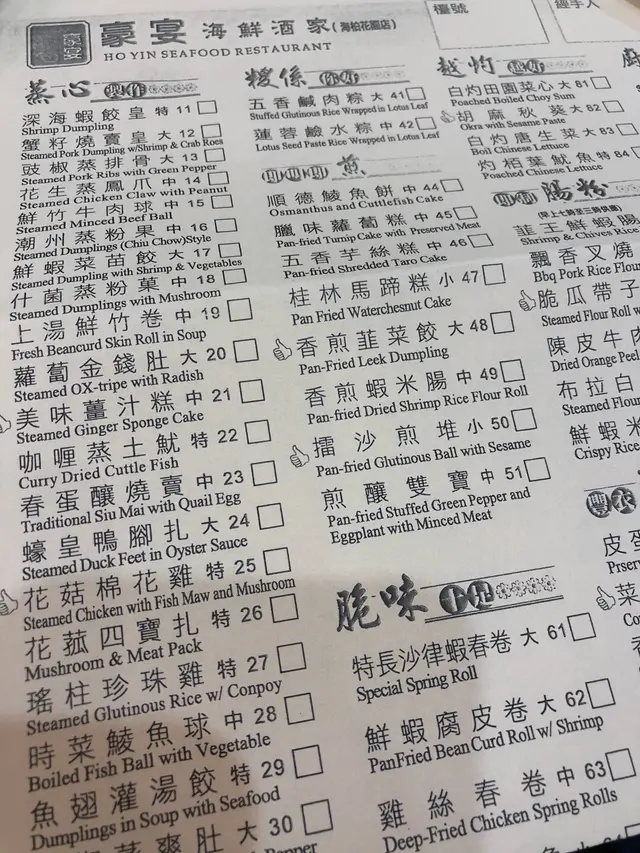 豪宴海鮮酒家(海柏花園店)
HO YIN SEAFOOD RESTAURANT
檯號
經手人
蒸心
深海蝦餃皇 特 11
Shrimp Dumpling
蟹籽燒賣皇 大 12
Steamed Pork Dumpling w/Shrimp & Crab Roes
豉椒蒸排骨 大 13
Steamed Pork Ribs with Green Pepper
花生蒸鳳爪 中 14
Steamed Chicken Claw with Peanut
鮮竹牛肉球 中 15
Steamed Minced Beef Ball
潮州蒸粉果 中 16
Steamed Dumplings (Chiu Chow)Style
鮮蝦菜苗餃 大 17
Steamed Dumpling with Shrimp & Vegetables
什菌蒸粉菓 中 18
Steamed Dumplings with Mushroom
上湯鮮竹卷 中 19
Fresh Beancurd Skin Roll in Soup
蘿蔔金錢肚 大 20
Steamed OX-tripe with Radish
美味薑汁糕 中 21
Steamed Ginger Sponge Cake
咖喱蒸土魷 特 22
Curry Dried Cuttle Fish
春蛋釀燒賣 中 23
Traditional Siu Mai with Quail Egg
蠔皇鴨腳扎 大 24
Steamed Duck Feet in Oyster Sauce
花菇棉花雞 特 25
Steamed Chicken with Fish Maw and Mushroom
花菰四寶扎 特 26
Mushroom & Meat Pack
瑤柱珍珠雞 特 27
Steamed Glutinous Rice w/ Conpoy
時菜鯪魚球 中 28
Boiled Fish Ball with Vegetable
魚翅灌湯餃 特 29
Dumplings in Soup with Seafood
爽肚 大 30
Pepper
糉係
五香鹹肉粽 大 41
Stuffed Glutinous Rice Wrapped in Lotus Leaf
蓮蓉鹼水粽 中 42
Lotus Seed Paste Rice Wrapped in Lotus Leaf
煎
順德鯪魚餅 中 44
Osmanthus and Cuttlefish Cake
臘味蘿蔔糕 中 45
Pan-fried Turnip Cake with Preserved Meat
五香芋絲糕 中 46
Pan-fried Shredded Taro Cake
桂林馬蹄糕 小 47
Pan Fried Waterchesnut Cake
香煎韮菜餃 大 48
Pan-Fried Leek Dumpling
香煎蝦米腸 中 49
Pan-fried Dried Shrimp Rice Flour Roll
擂沙煎堆 小 50
Pan-fried Glutinous Ball with Sesame
煎釀雙寶 中 51
Pan-fried Stuffed Green Pepper and
Eggplant with Minced Meat
脆味
特長沙律蝦春卷 大 61
Special Spring Roll
鮮蝦腐皮卷 大 62
PanFried Bean Curd Roll w/ Shrimp
雞絲春卷 中 63
Deep-Fried Chicken Spring Rolls
越竹
白灼田園菜心 大 81
Poached Boiled Choy Sum
胡麻秋葵 大 82
Okra with Sesame Paste
白灼唐生菜 大 83
Boil Chinese Lettuce
灼栢葉魷魚 特 84
Poached Chinese Lettuce
腸粉
韮王鮮蝦腸
Shrimp & Chives Rice
飄香叉燒
Bbq Pork Rice Flour
脆瓜帶子
Steamed Flour Roll w
陳皮牛肉
Dried Orange Peel
布拉白
Steamed Flour
鮮蝦米
Crispy Rice
皮蛋
菜